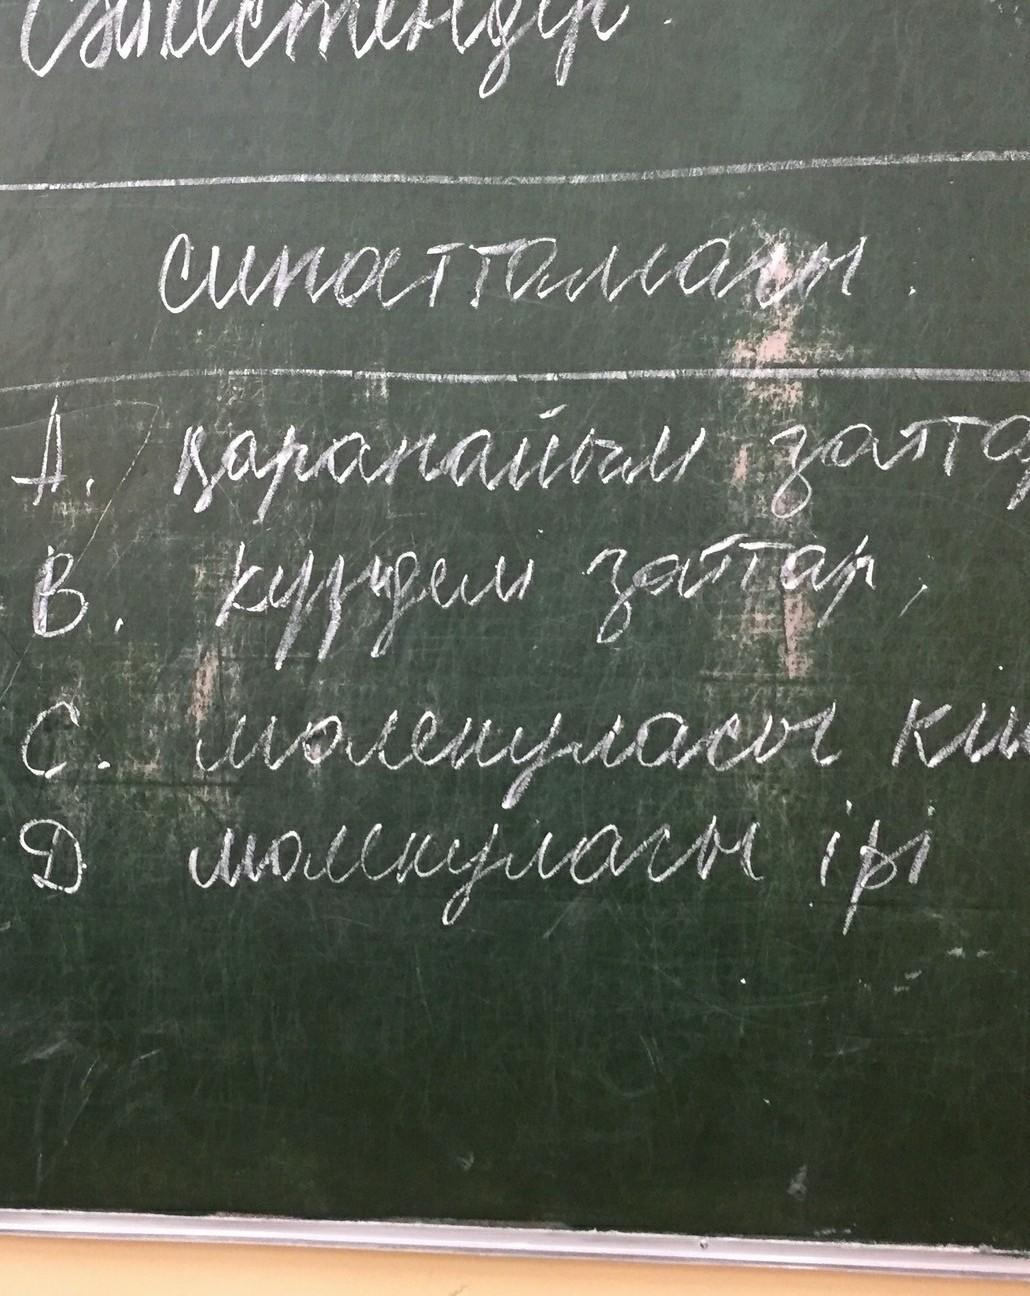 Сәйкестендір.
сипаттамасы.
А. қарапайым затта
В. күрделі заттар,
С. молекуласы кіш
D молекуласы ірі